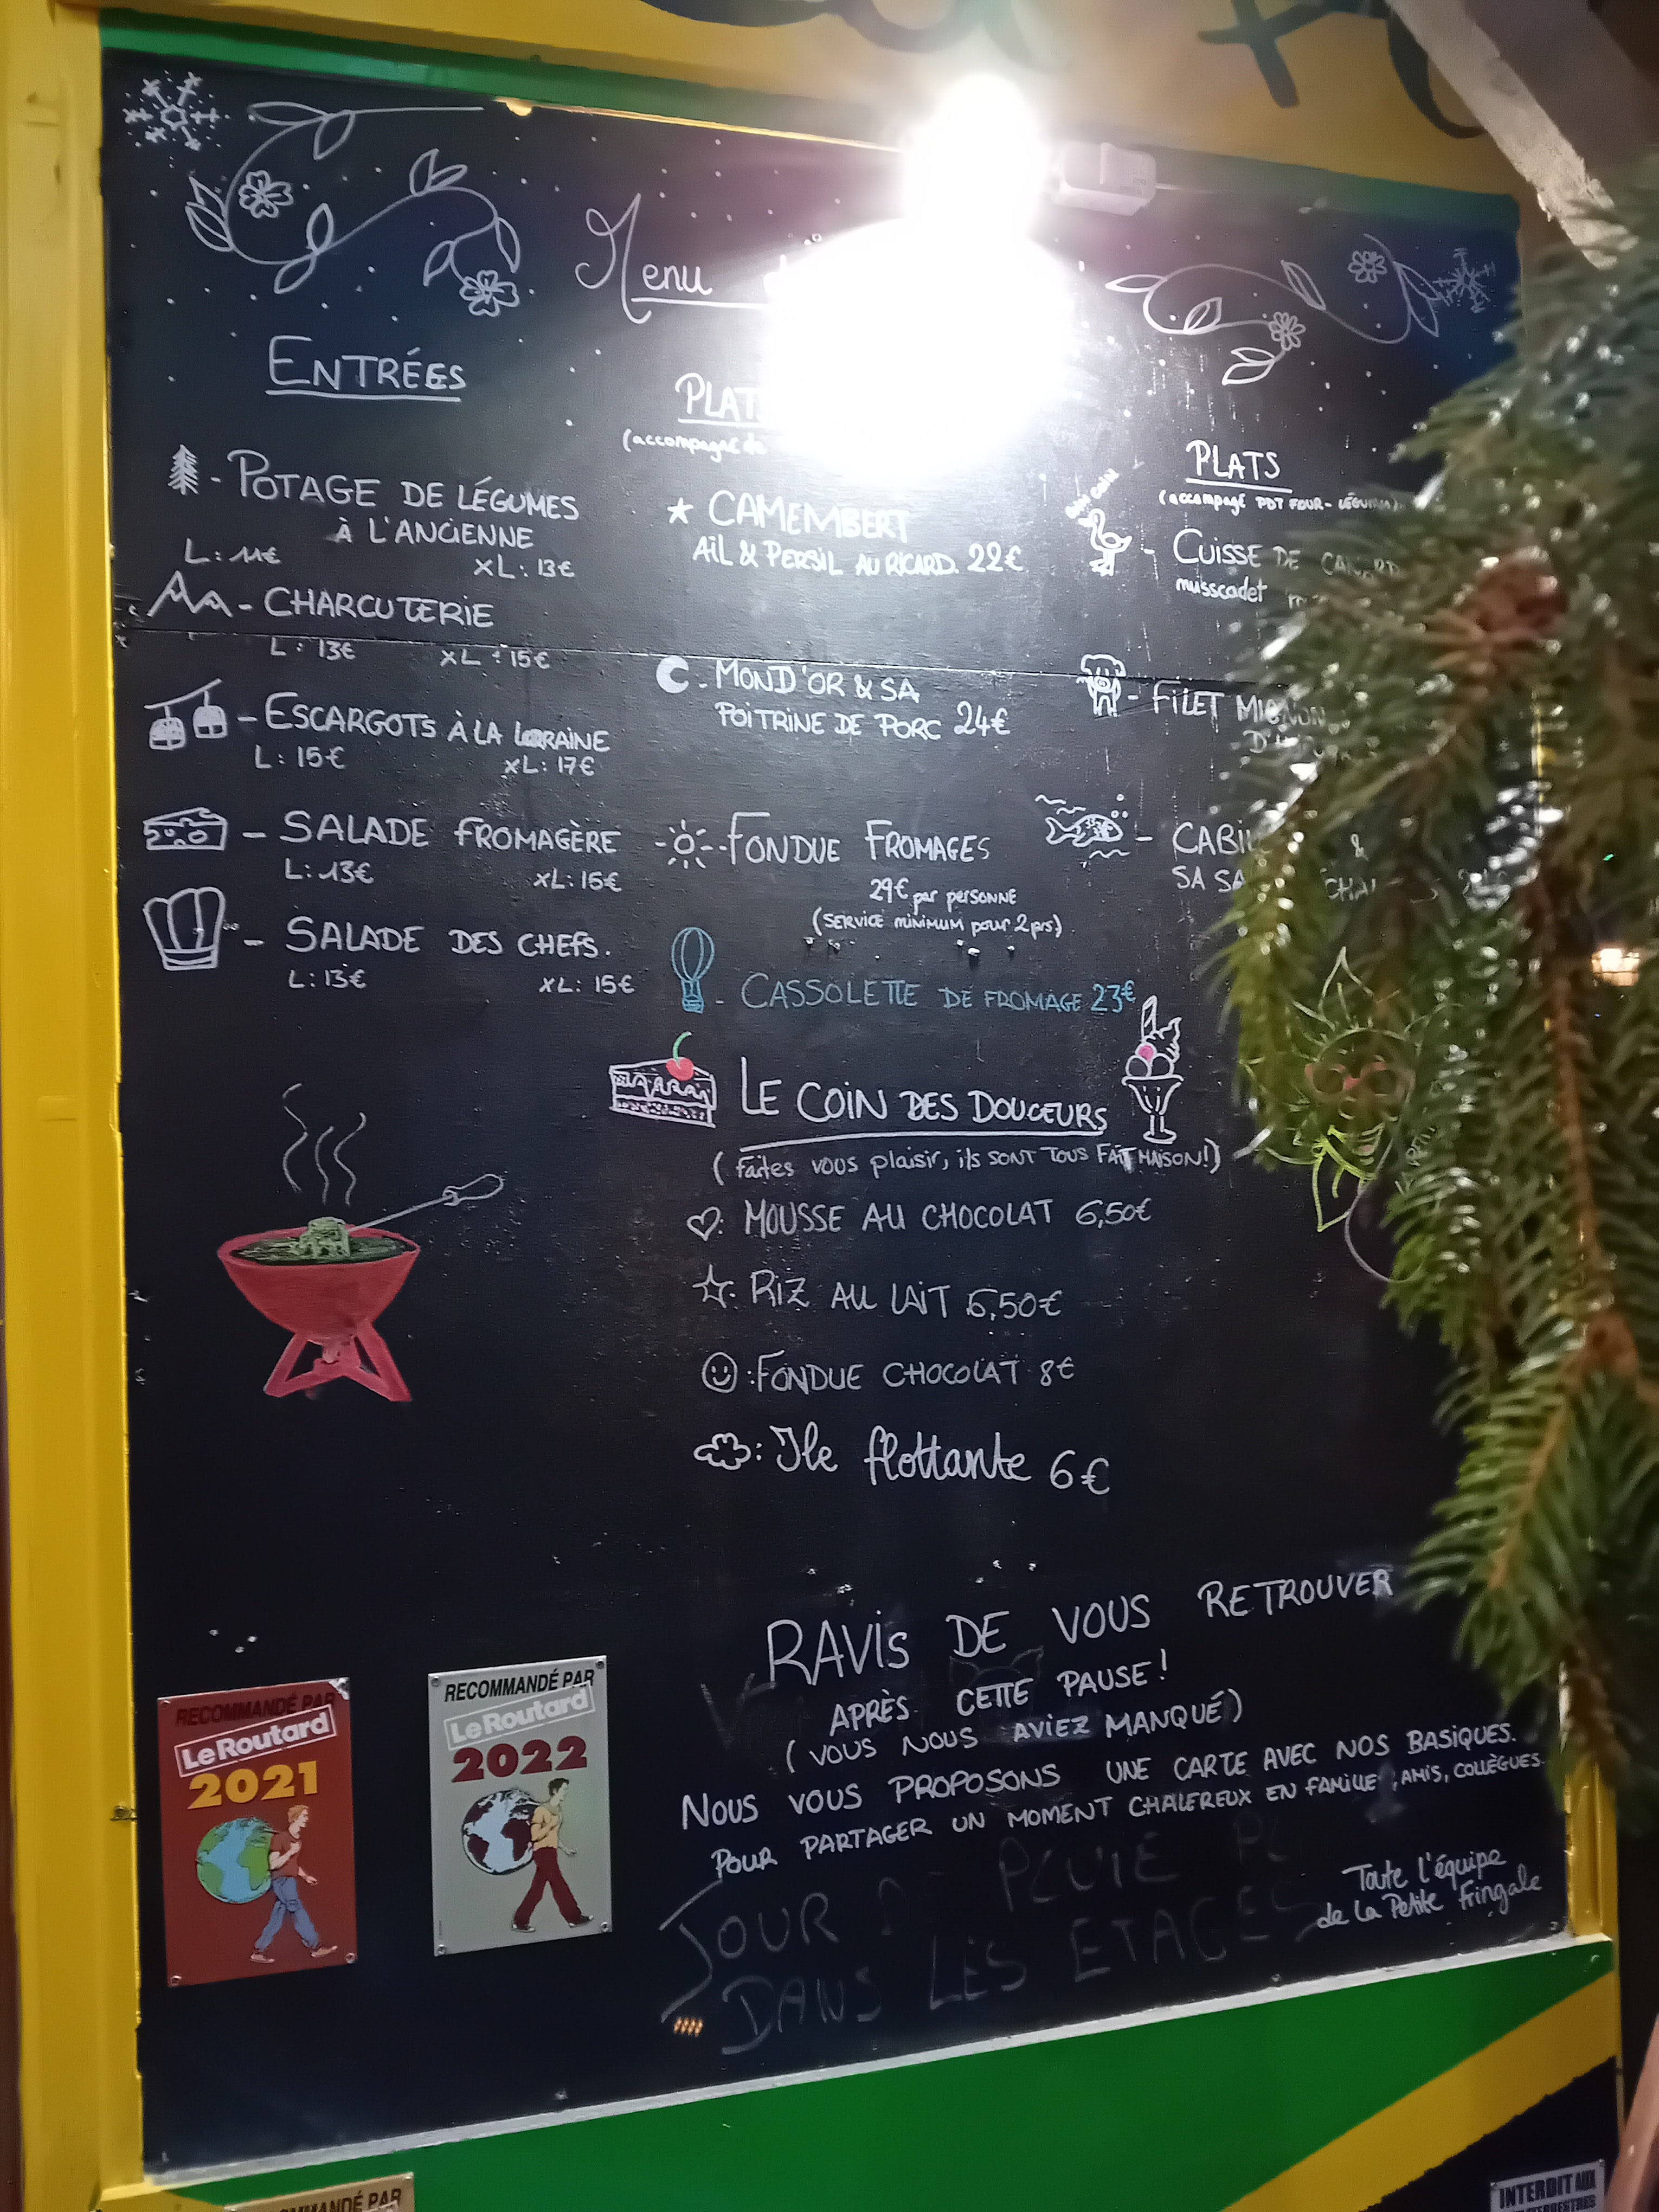 Menu
ENTRÉES
- POTAGE DE LÉGUMES
À L'ANCIENNE
L: 11€ XL: 13€
- CHARCUTERIE
L: 13€ XL: 15€
- ESCARGOTS À LA LORRAINE
L: 15€ XL: 17€
- SALADE FROMAGÈRE
L: 13€ XL: 15€
- SALADE DES CHEFS.
L: 13€ XL: 15€
PLATS
(accompagné de
CAMEMBERT
AIL & PERSIL AU RICARD. 22€
- MOND'OR & SA
POITRINE DE PORC 24€
- FONDUE FROMAGES
29€ par personne
(SERVICE MINIMUM pour 2 prs)
- CASSOLETTE DE FROMAGE 23€
PLATS
(accompagé PDT FOUR - LÉGUMES)
COIN COIN
- CUISSE DE CANARD
musscadet
- FILET MIGNON
-
SA
LE COIN DES DOUCEURS
(faites vous plaisir, ils SONT TOUS FAIT MAISON!)
: MOUSSE AU CHOCOLAT 6,50€
: RIZ AU LAIT 6,50€
: FONDUE CHOCOLAT 8€
: Ile flottante 6€
RAVIS DE VOUS RETROUVER
APRÈS CETTE PAUSE!
(VOUS NOUS AVIEZ MANQUÉ)
NOUS VOUS PROPOSONS UNE CARTE AVEC NOS BASIQUES.
POUR PARTAGER UN MOMENT CHALEREUX EN FAMILLE, AMIS, COLLÈGUES.
Toute l'équipe
de la Petite Fringale
JOUR DE PLUIE
DANS LES ETAGES
RECOMMANDÉ PAR
Le Routard
2021
RECOMMANDÉ PAR
Le Routard
2022
RECOMMANDÉ PAR
INTERDIT AUX